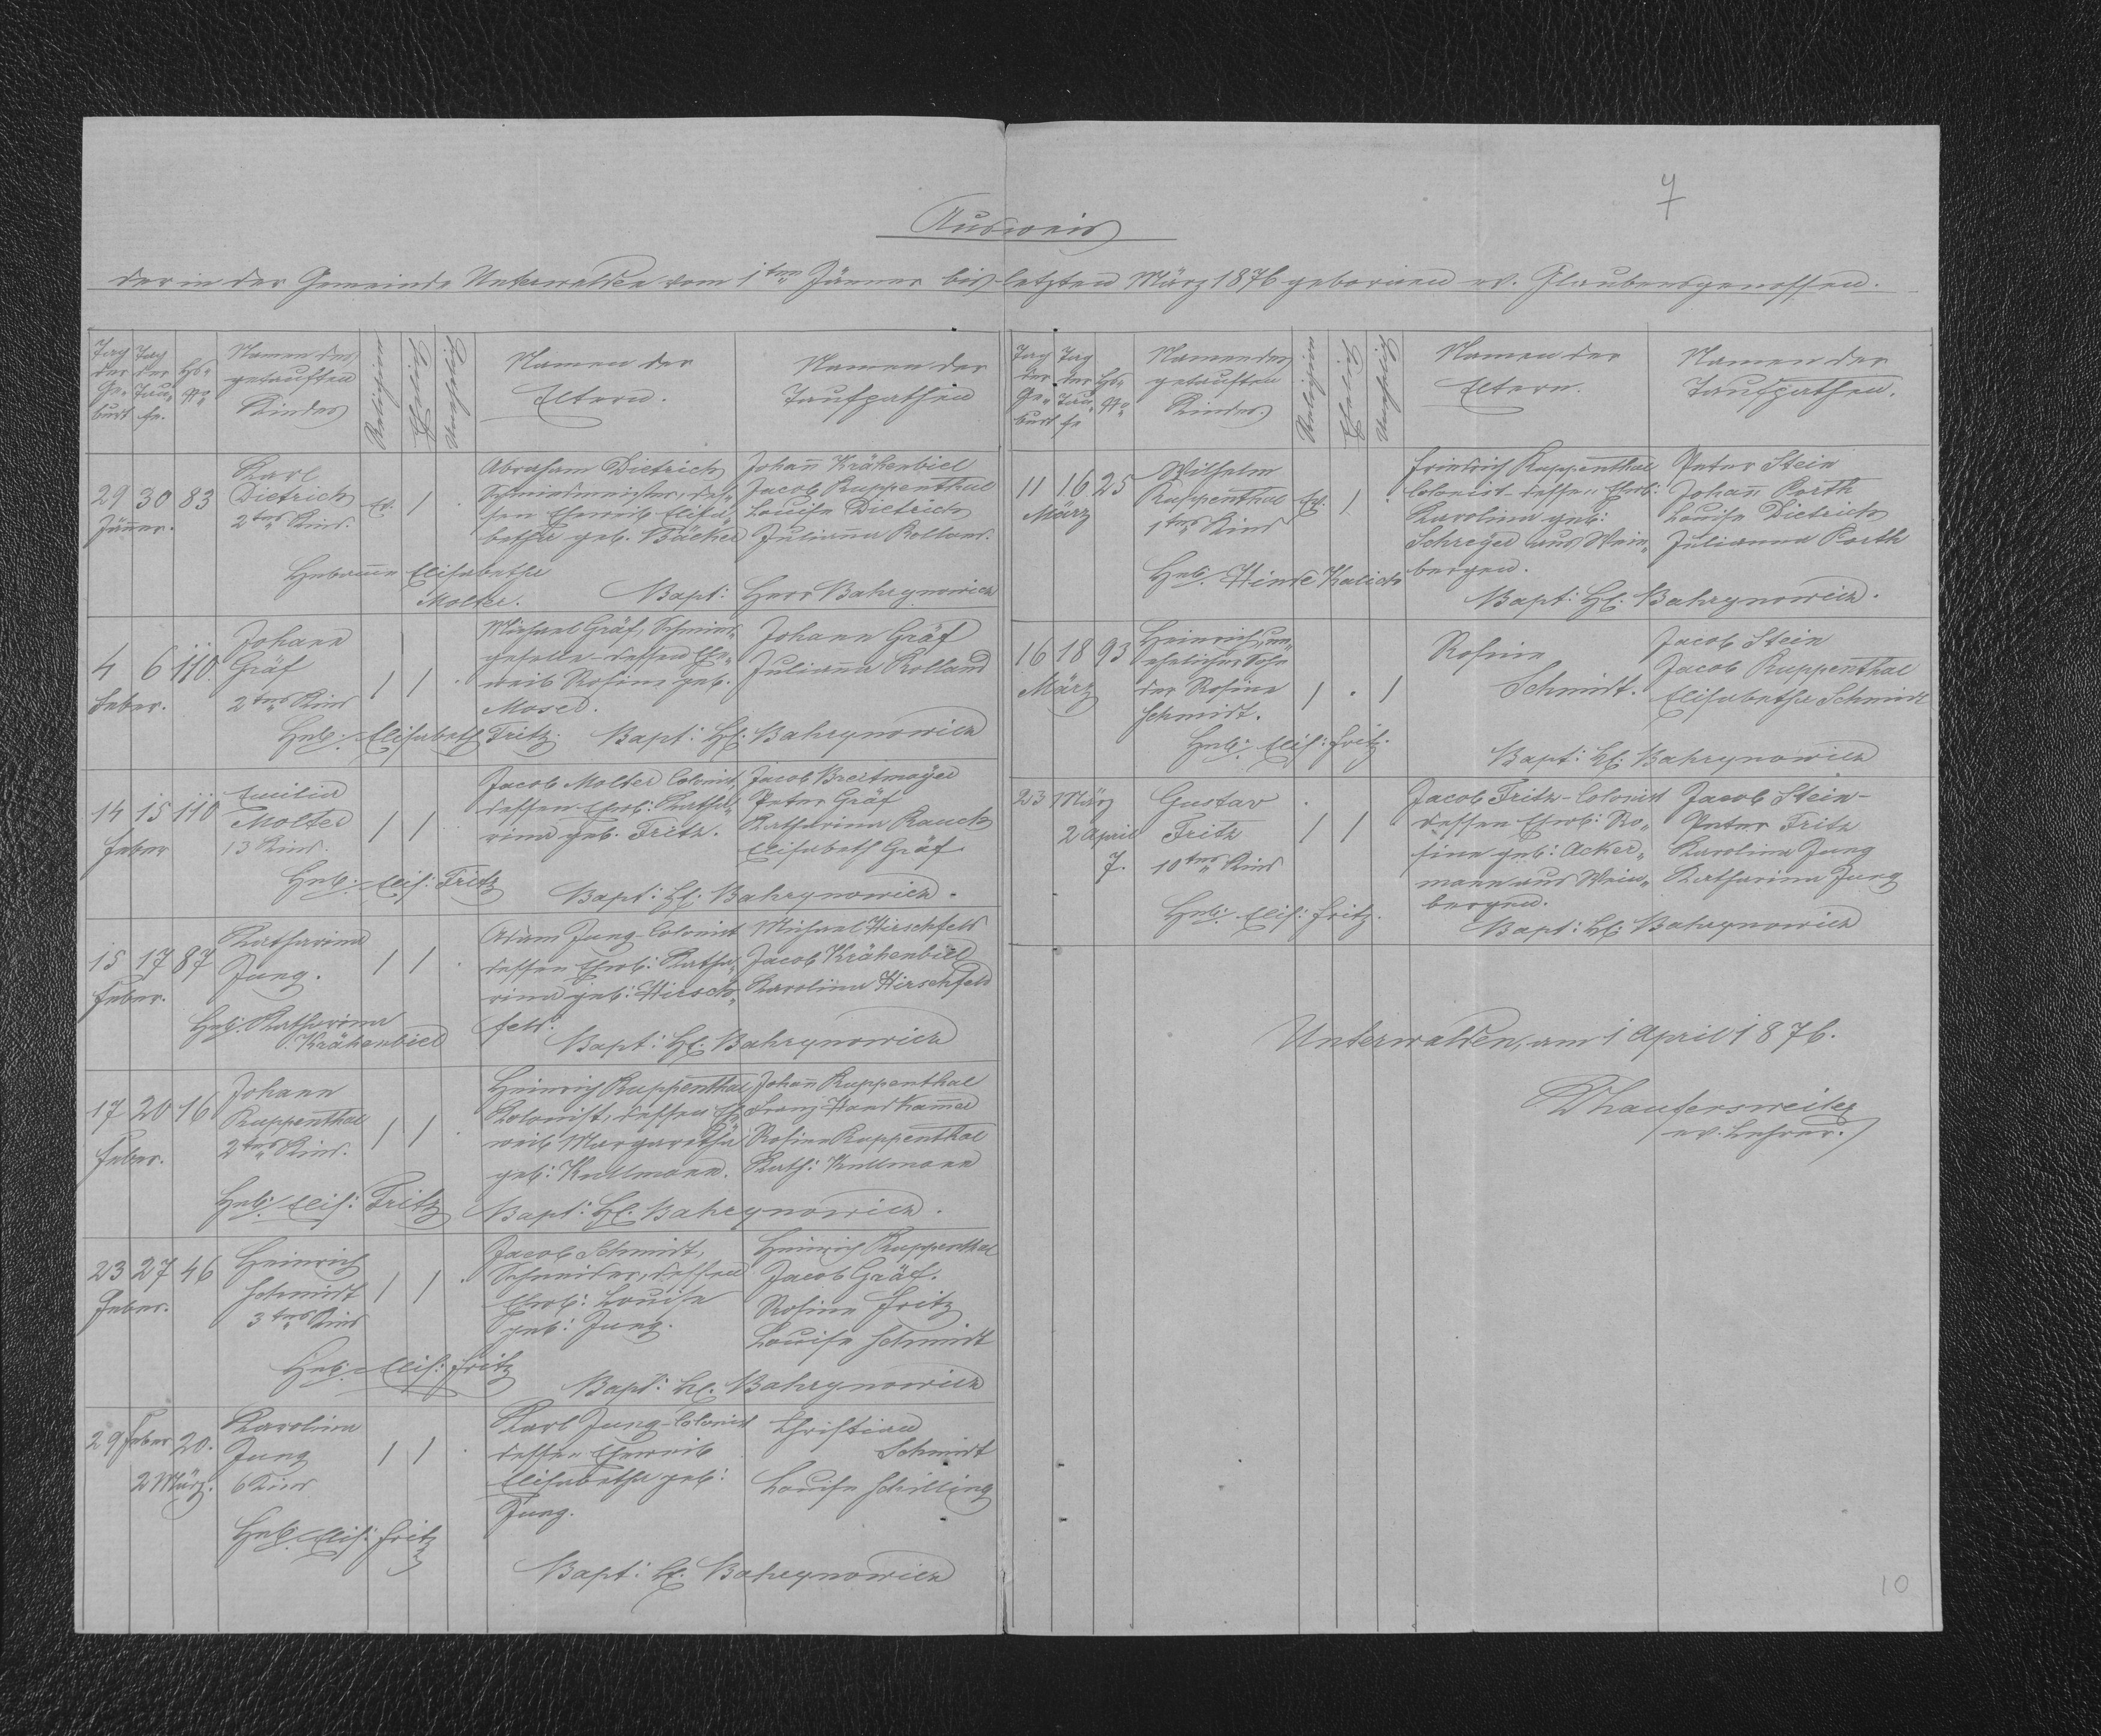 7
Ausweis
der in der Gemeinde Unterwalden vom 1ten Jänner bis letzten März 1876 geborenen ev. Glaubensgenossen.
Tag der Ge- burt
Tag der Tau- fe.
Hs- No
Namen des getauften Kindes
Religion
Ehelich
Unehelich
Namen der Eltern.
Namen der Taufpathen
29 30 83
Jänner.
Karl
Dietrich
2tes Kind.
ev. 1 .
Abraham Dietrich
Schmiedmeister, des-
sen Eheweib Elisa-
betha geb. Bäcker
Johann Krähenbiel
Jacob Ruppenthal
Louise Dietrich
Julianna Rolland.
Hebamme Elisabetha
Molter.
Bapt: Herr Bahrynowicz
4 6 110.
Feber.
Johann
Gräf
2tes Kind
/ / .
Michael Gräf, Schmied-
geselle - dessen Ehe-
weib Rosine geb.
Moser.
Johann Gräf
Julianna Rolland
Heb: Elisabeth Fritz.
Bapt: H: Bahrynowicz
14 15 110
Feber
Emilia
Molter
13 Kind.
/ / .
Jacob Molter Colonist,
dessen Ehwb: Katha-
rina geb. Fritz.
Jacob Breitmayer
Peter Gräf
Katharina Rauch
Elisabeth Gräf
Heb: Elis: Fritz
Bapt: H: Bahrynowicz.
15 17 87
Feber.
Katharina
Jung.
/ / .
Adam Jung - Colonist
dessen Ehwb: Katha-
rina geb: Hirsch-
feld.
Michael Hirschfeld
Jacob Krähenbiel
Karolina Hirschfeld
Heb: Katharina
Krähenbiel
Bapt: H: Bahrynowicz
17 20 16
Feber.
Johann
Ruppenthal
2tes Kind.
/ / .
Heinrich Ruppenthal
Kolonist, dessen Eh-
weib Margaretha
geb: Kullmann.
Johann Ruppenthal
Franz Handkammer
Rosine Ruppenthal
Kath: Kullmann
Heb: Elis: Fritz
Bapt: H: Bahrynowicz.
23 27 46
Feber.
Heinrich
Schmidt
3tes Kind
/ / .
Jacob Schmidt,
Schneider, dessen
Ehwb: Louise
geb: Jung.
Heinrich Ruppenthal
Jacob Gräf.
Rosine Fritz
Louise Schmidt
Heb: Elis: Fritz
Bapt: H: Bahrynowicz
29 Feber 20.
2 März.
Karolina
Jung
6 Kind
/ / .
Karl Jung - Colonist
dessen Eheweib
Elisabetha geb:
Jung.
Christian
Schmidt
Louise Schilling
Heb: Elis: Fritz
Bapt: H: Bahrynowicz
Tag der Ge- burt
Tag der Tau- fe
Hs- No
Namen des getauften Kindes.
Religion
Ehelich
Unehelich
Namen der Eltern.
Namen der Taufpathen.
11 16 25
März
Wilhelm
Ruppenthal
1tes Kind
Ev. 1. .
Friedrich Ruppenthal
Colonist - dessen Ehwb:
Karolina geb:
Schreyer aus Wein-
bergen.
Peter Stein
Johann Porth
Louise Dietrich
Julianna Porth
Heb: Hinde Kalich
Bapt: H: Bahrynowicz.
16 18 93
März
Heinrich, un-
ehelicher Sohn
der Rosine
Schmidt.
/ . /
Rosine
Schmidt.
Jacob Stein
Jacob Ruppenthal
Elisabetha Schmidt
Heb: Elis: Fritz.
Bapt: H: Bahrynowicz
23 März
2 April
7.
Gustav
Fritz
10tes Kind
/ / .
Jacob Fritz - Colonist
dessen Ehwb: Ro-
sine geb: Acker-
mann aus Wein-
bergen.
Jacob Stein -
Peter Fritz
Karolina Jung
Katharina Jung
Heb: Elis: Fritz.
Bapt: H: Bahrynowicz
Unterwalden, am 1 April 1876.
ev. Lehrer.
10